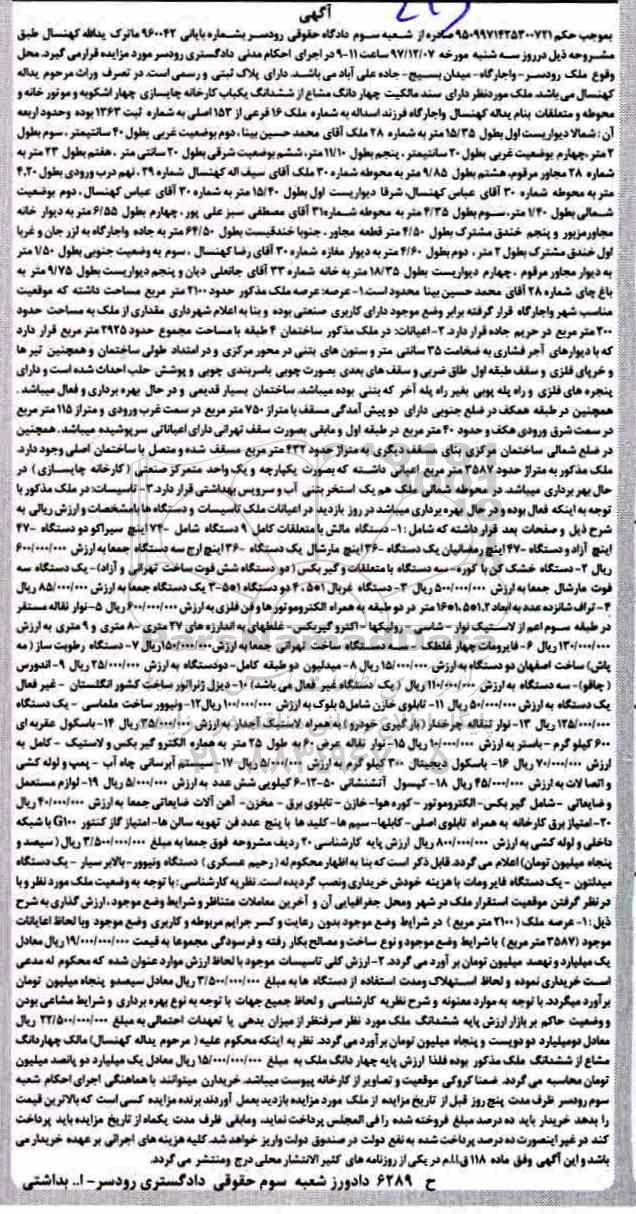 آگهی
بموجب حکم ۹۵۰۹۹۷۱۴۲۵۳۰۰۷۲۱ صادره از شعبه سوم دادگاه حقوقی رودسر بشماره بایانی ۹۶۰۰۴۲ ماترک یدالله کهنسال طبق
مشروحه ذیل در روز سه شنبه مورخه ۹۷/۱۲/۰۷ ساعت ۱۱-۹ در اجرای احکام مدنی دادگستری رودسر مورد مزایده قرار می گیرد. محل
وقوع ملک رودسر- واجارگاه- میدان بسیج- جاده علی آباد می باشد. دارای پلاک ثبتی و رسمی است. در تصرف وراث مرحوم یداله
کهنسال می باشد. ملک موردنظر دارای سند مالکیت چهار دانگ مشاع از ششدانگ یکباب کارخانه چایسازی چهار اشکوبه و موتور خانه و
محوطه و متعلقات بنام یداله کهنسال واجارگاه فرزند اسداله به شماره ملک ۱۶ فرعی از ۱۵۳ اصلی به شماره ثبت ۱۳۶۳ بوده وحدود اربعه
آن : شمالا دیواریست اول بطول ۱۵/۳۵ متر به شماره ۲۸ ملک آقای محمد حسین بینا، دوم بوضعیت غربی بطول ۴۰ سانتیمتر، سوم بطول
۲ متر، چهارم بوضعیت غربی بطول ۲۰ سانتیمتر، پنجم بطول ۱۱/۱۰ متر، ششم بوضعیت شرقی بطول ۲۰ سانتی متر، هفتم بطول ۲۳ متر به
شماره ۲۸ مجاور مرقوم، هشتم بطول ۹/۸۵ متر به محوطه شماره ۳۰ ملک آقای سیف اله کهنسال شماره ۲۹، نهم درب ورودی بطول ۴٫۲۰
متر به محوطه شماره ۳۰ آقای عباس کهنسال، شرقا دیواریست اول بطول ۱۵/۴۰ متر به شماره ۳۰ آقای عباس کهنسال، دوم بوضعیت
شمالی بطول ۱/۴۰ متر، سوم بطول ۴/۳۵ متر به محوطه شماره ۳۱ آقای مصطفی سبز علی پور، چهارم بطول ۶/۵۵ متر به دیوار خانه
مجاور مزبور و پنجم خندق مشترک بطول ۴/۵۰ متر قطعه مجاور، جنوبا خندقیست بطول ۶۴/۵۰ متر به جاده واجارگاه به لزر جان و غربا
اول خندق مشترک بطول ۲ متر، دوم بطول ۴/۶۰ متر به دیوار مغازه شماره ۳۰ آقای رضا کهنسال، سوم به وضعیت جنوبی بطول ۱/۵۰ متر
به دیوار مجاور مرقوم، چهارم دیواریست بطول ۱۸/۳۵ متر به خانه شماره ۳۳ آقای جانعلی دیان و پنجم دیواریست بطول ۹/۷۵ متر به
باغ چای شماره ۲۸ آقای محمد حسین بینا محدود است. ۱- عرصه: عرصه ملک مذکور حدود ۲۱۰۰ متر مربع مساحت داشته که موقعیت
مناسب شهر واجارگاه قرار گرفته برابر وضع موجود دارای کاربری صنعتی بوده و بنا به اعلام شهرداری مقداری از ملک به مساحت حدود
۲۰۰ متر مربع در حریم جاده قرار دارد. ۲- اعیانات: در ملک مذکور ساختمان ۴ طبقه با مساحت مجموع حدود ۲۹۲۵ متر مربع قرار دارد
که با دیوارهای آجر فشاری به ضخامت ۳۵ سانتی متر و ستون های بتنی در محور مرکزی و در امتداد طولی ساختمان و همچنین تیر ها
و خرپای فلزی و سقف طبقه اول طاق ضربی و سقف های بعدی بصورت چوبی باسربندی چوبی و پوشش حلب احداث شده است و دارای
پنجره های فلزی و راه پله چوبی بغیر راه پله آخر که بتنی بوده میباشد. ساختمان بسیار قدیمی و در حال بهره برداری و فعال میباشد.
همچنین در طبقه همکف در ضلع جنوبی دارای دو پیش آمدگی مسقف با متراژ ۷۵۰ متر مربع در سمت غرب ورودی و متراژ ۱۱۵ متر مربع
در سمت شرق ورودی هکف و حدود ۴۰ متر مربع در طبقه اول و مابقی بصورت سقف تهرانی دارای اعیاناتی سرپوشیده میباشد. همچنین
در ضلع شمالی ساختمان مرکزی بنای مسقف دیگری به متراژ حدود ۴۲۲ متر مربع مسقف شده و متصل با ساختمان اصلی وجود دارد.
ملک مذکور به متراژ حدود ۳۵۸۷ متر مربع اعیانی داشته که بصورت یکپارچه و یک واحد متمرکز صنعتی (کارخانه چایسازی) در
حال بهر برداری میباشد. در محوطه شمالی ملک هم یک استخر بتنی آب و سرویس بهداشتی قرار دارد. ۳- تاسیسات: در ملک مذکور با
توجه به اینکه فعال بوده و در حال بهره برداری میباشد در روز بازدید در اعیانات ملک تاسیسات و دستگاه ها بامشخصات و ارزش ریالی به
شرح ذیل و صفحات بعد قرار داشته که شامل : ۱- دستگاه مالش با متعلقات کامل ۹ دستگاه شامل -۷۴ اینچ سیراکو دو دستگاه -۴۷
اینچ آزاد و دستگاه -۴۷ اینچ رمضانیان یک دستگاه -۳۶ اینچ مارشال یک دستگاه -۳۶ اینچ ارج سه دستگاه جمعا به ارزش ۶۰۰/۰۰۰/۰۰۰
ریال ۲- دستگاه خشک کن با کوره- سه دستگاه با متعلقات و گیربکس (دو دستگاه شش فوت ساخت تهرانی و آزاد)- یک دستگاه سه
فوت مارشال جمعا به ارزش ۵۰۰/۰۰۰/۰۰۰ ریال ۳- دستگاه غربال ۵*۱، ۴ دو دستگاه ۵*۱-۳ یک دستگاه جمعا به ارزش ۸۵/۰۰۰/۰۰۰ ریال
۴- تراف شانزده عدد به ابعاد ۱٫۲*۱٫۵*۱۶ متر در دو طبقه به همراه الکتروموتور ها و فن فلزی به ارزش ۶۰/۰۰۰/۰۰۰ ریال ۵- نوار نقاله مستقر
در طبقه سوم اعم از لاستیک نوار- شاسی- رولیکها- الکترو گیربکس- غلطهای به اندازه های ۲۷ متری -۸ متری و ۹ متری به ارزش
۱۳۰/۰۰۰/۰۰۰ ریال ۶- فایرومات چهار غلطک- سه دستگاه ساخت تهرانی جمعا به ارزش ۱۵۰/۰۰۰/۰۰۰ ریال ۷- دستگاه رطوبت ساز (مه
پاش) ساخت اصفهان دو دستگاه به ارزش ۱۵/۰۰۰/۰۰۰ ریال ۸- میدلیون دو طبقه کامل- دو دستگاه به ارزش ۲۵/۰۰۰/۰۰۰ ریال ۹- اندورس
(چاقو)- سه دستگاه به ارزش ۱۱۰/۰۰۰/۰۰۰ ریال (یک دستگاه غیر فعال می باشد) ۱۰- دیزل ژنراتور ساخت کشور انگلستان - غیر فعال
یک دستگاه به ارزش ۵۰/۰۰۰/۰۰۰ ریال ۱۱- تابلوی خازن شامل ۵ بلوک به ارزش ۱۰۰/۰۰۰/۰۰۰ ریال ۱۲- ونیوور ساخت ملماسی - یک دستگاه
۱۲۵/۰۰۰/۰۰۰ ریال ۱۳- نوار تنقاله چرخدار (بارگیری خودرو) به همراه لاستیک آجدار به ارزش ۳۵/۰۰۰/۰۰۰ ریال ۱۴- باسکول عقربه ای
۶۰۰ کیلو گرم- باستر به ارزش ۱۰/۰۰۰/۰۰۰ ریال ۱۵- نوار نقاله عرض ۶۰ به طول ۲۵ متر به همراه الکترو گیربکس و لاستیک - کامل به
ارزش ۷۰/۰۰۰/۰۰۰ ریال ۱۶- باسکول دیجیتال ۳۰۰ کیلو گرم به ارزش ۵/۰۰۰/۰۰۰ ریال ۱۷- سیستم آبرسانی چاه آب - پمپ و لوله کشی
و اتصالات به ارزش ۴۵/۰۰۰/۰۰۰ ریال ۱۸- کپسول آتشنشانی ۵۰-۱۲-۶ کیلویی شش عدد به ارزش ۵/۰۰۰/۰۰۰ ریال ۱۹- لوازم مستعمل
و ضایعاتی- شامل گیربکس- الکتروموتور- کوره هوا- خازن- تابلوی برق - مخزن- آهن آلات ضایعاتی جمعا به ارزش ۴۰/۰۰۰/۰۰۰ ریال
۲۰- امتیاز برق کارخانه به همراه تابلوی اصلی- کابلها- سیم ها- کلید ها با پنج عدد فن تهویه سالن ها- امتیاز گاز کنتور G100 با شبکه
داخلی و لوله کشی به ارزش ۸۰۰/۰۰۰/۰۰۰ ریال ارزش پایه کارشناسی ۲۰ ردیف مشروحه فوق جمعا به مبلغ ۳/۵۰۰/۰۰۰/۰۰۰ ریال (سیصد و
پنجاه میلیون تومان) اعلام می گردد. قابل ذکر است که بنا به اظهار محکوم له (رحیم عسکری) دستگاه ونیوور- بالابر سیار - یک دستگاه
میدلتون - یک دستگاه فایرومات با هزینه خودش خریداری ونصب گردیده است. نظریه کارشناسی: با توجه به وضعیت ملک مورد نظر و با
در نظر گرفتن موقعیت استقرار ملک در شهر ومحل جغرافیایی آن و آخرین معاملات متناظر و شرایط وضع موجود، ارزش گذاری به شرح
ذیل: ۱- عرصه ملک (۲۱۰۰ متر مربع) در شرایط وضع موجود بدون رعایت و کسر جرایم مربوطه و کاربری وضع موجود وبا لحاظ اعیانات
موجود (۳۵۸۷ متر مربع) با شرایط وضع موجود و نوع ساخت و مصالح بکار رفته و فرسودگی مجموعا به قیمت ۱۹/۰۰۰/۰۰۰/۰۰۰ ریال معادل
یک میلیارد و نهصد میلیون تومان بر آورد می گردد. ۲- ارزش کلی تاسیسات موجود با لحاظ ارزش موارد عنوان شده که محکوم له مدعی
است خریداری نموده و لحاظ استهلاک ومدت استفاده از دستگاه ها به مبلغ ۳/۵۰۰/۰۰۰/۰۰۰ ریال معادل سیصدو پنجاه میلیون تومان
برآورد میگردد. با توجه به موارد معنونه و شرح نظریه کارشناسی و لحاظ جمیع جهات با توجه به نوع بهره برداری و شرایط مشاعی بودن
و وضعیت حاکم بر بازار ارزش پایه ششدانگ ملک مورد نظر صرفنظر از میزان بدهی یا تعهدات احتمالی به مبلغ ۲۲/۵۰۰/۰۰۰/۰۰۰ ریال
معادل دومیلیارد دو دویست و پنجاه میلیون تومان بر آورد می گردد. نظر به اینکه محکوم علیه (مرحوم یداله کهنسال) مالک چهاردانگ
مشاع از ششدانگ ملک مذکور بوده فلذا ارزش پایه چهار دانگ ملک به مبلغ ۱۵/۰۰۰/۰۰۰/۰۰۰ ریال معادل یک میلیارد دو پانصد میلیون
تومان محاسبه می گردد. ضمنا کروکی موقعیت و تصاویر از کارخانه پیوست میباشد. خریداران میتوانند با هماهنگی اجرای احکام شعبه
سوم رودسر ظرف مدت پنج روز قبل از تاریخ مزایده از ملک مورد مزایده بازدید بعمل آوردند برنده مزایده کسی است که بالاترین قیمت
را بدهد خریدار باید ده درصد مبلغ فروخته شده را فی المجلس پرداخت نماید. ومابقی ظرف مدت یکماه از تاریخ مزایده باید پرداخت
کند در غیر اینصورت ده درصد پرداخت شده به نفع دولت در صندوق دولت واریز خواهد شد. کلیه هزینه های اجرائی بر عهده خریدار می
باشد و این آگهی وفق ماده ۱۱۸ ق.ا.ا.م در یکی از روزنامه های کثیر الانتشار محلی درج ومنتشر می گردد.
ح ۶۲۸۹ دادورز شعبه سوم حقوقی دادگستری رودسر- ا.. بداشتی